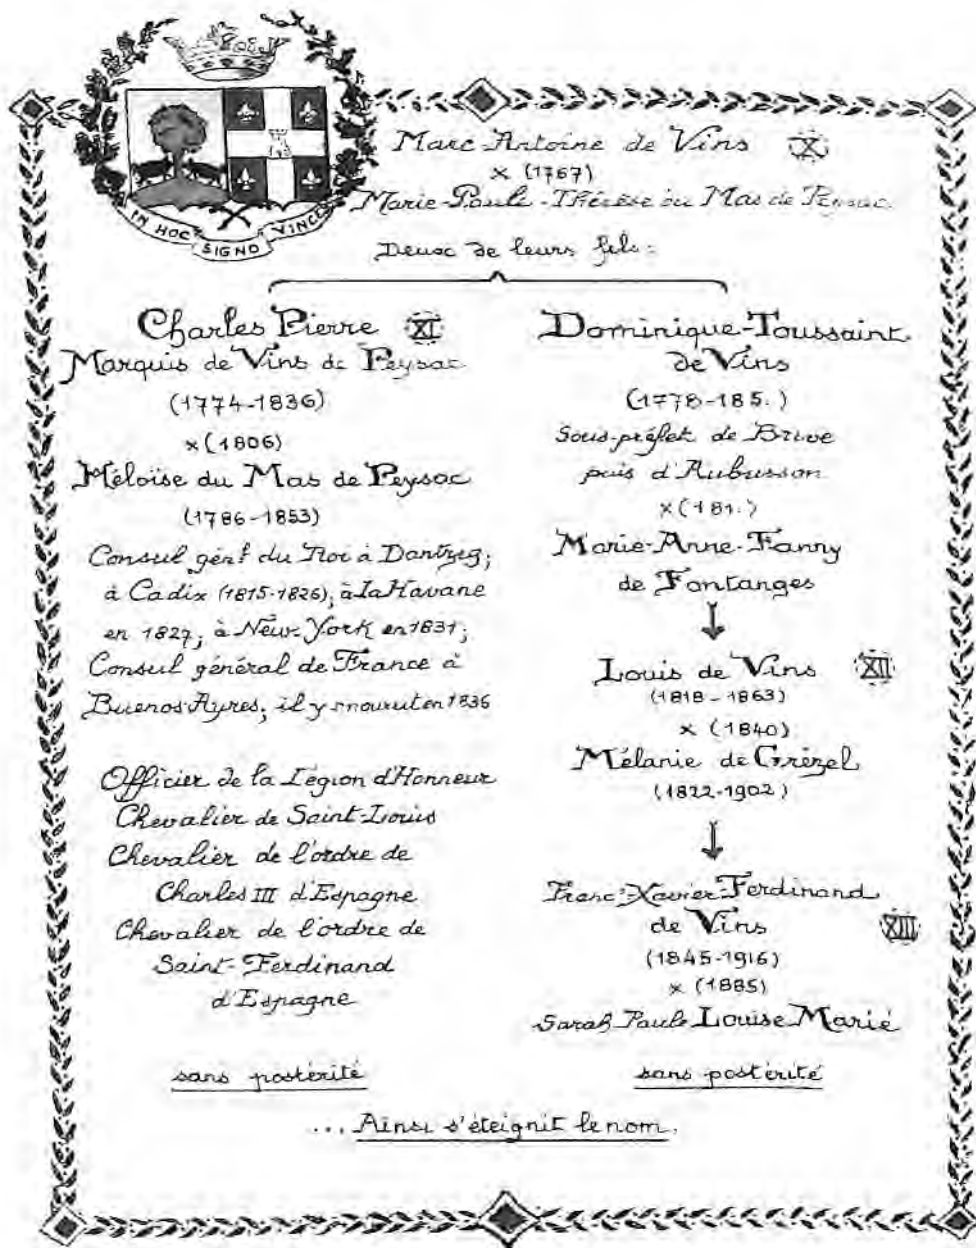 IN HOC SIGNO VINCES
Marc Antoine de Vins X
x (1767)
Marie-Paule-Thérèse du Mas de Peysac
Deux de leurs fils:
Charles Pierre XI
Marquis de Vins de Peysac
(1774-1836)
x (1806)
Héloïse du Mas de Peysac
(1786-1853)
Consul gén.l du Roi à Dantzig;
à Cadix (1815-1826), à La Havane
en 1827, à New-York en 1831;
Consul général de France à
Buenos Ayres; il y mourut en 1836
Officier de la Légion d'Honneur
Chevalier de Saint-Louis
Chevalier de l'ordre de
Charles III d'Espagne
Chevalier de l'ordre de
Saint-Ferdinand
d'Espagne
sans postérité
Dominique-Toussaint
de Vins
(1778-185.)
Sous-préfet de Brive
puis d'Aubusson
x (181.)
Marie-Anne-Fanny
de Fontanges
Louis de Vins XII
(1818-1863)
x (1840)
Mélanie de Grézel
(1822-1902)
Franc.s-Xavier-Ferdinand
de Vins XIII
(1845-1916)
x (1885)
Sarah Paule Louise Marié
sans postérité
... Ainsi s'éteignit le nom.